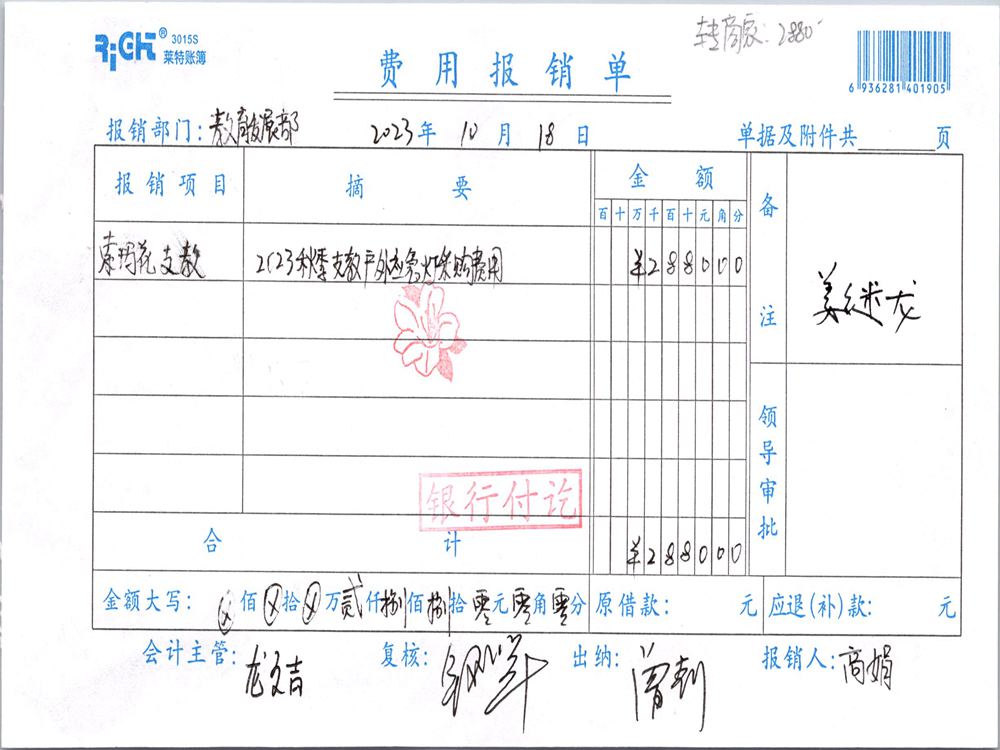 转商家: 2880
RiGHT® 3015S
莱特账簿
费用报销单
6 936281 401905
报销部门: 教育发展部 2023年 10月 18日 单据及附件共 页
报销项目 摘要 金额 备注
百 十 万 千 百 十 元 角 分
索玛花支教 2023秋季支教户外应急灯采购费用 ¥288000
银行付讫
领导审批
合计 ¥288000
金额大写: ⊗佰⊗拾⊗万贰仟捌佰捌拾零元零角零分 原借款: 元 应退(补)款: 元
会计主管: 龙文吉 复核: 出纳: 报销人: 高娟